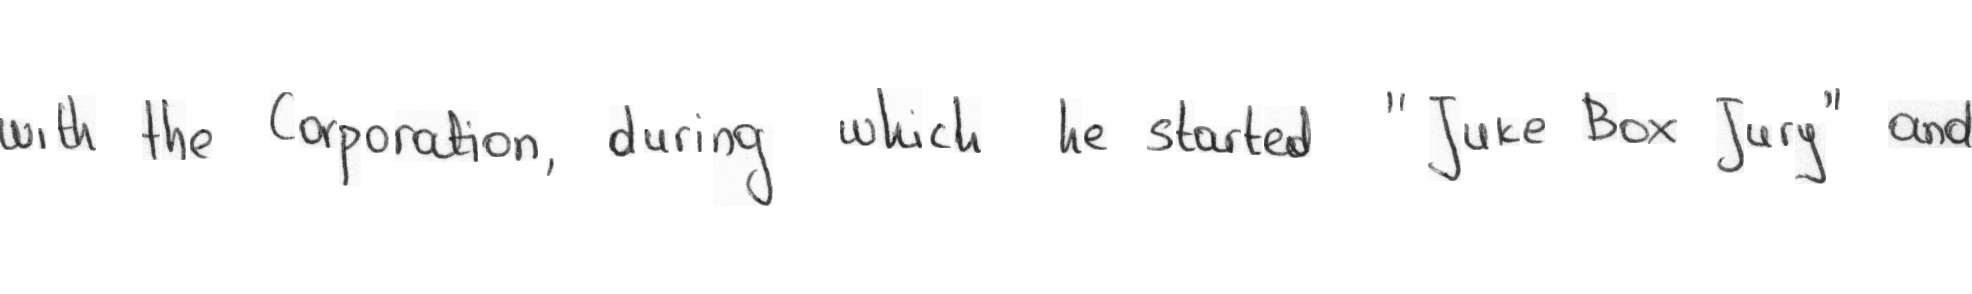 with the Corporation, during which he started "Juke Box Jury" and